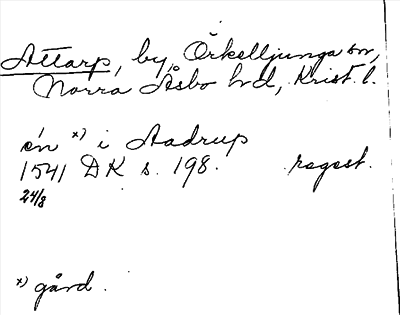 Attarp, by, Örkelljunga sn,
Norra Åsbo hd, Krist. l.
én x) i Aadrup
1541 DK s. 198. regest.
24/8
x) gård.